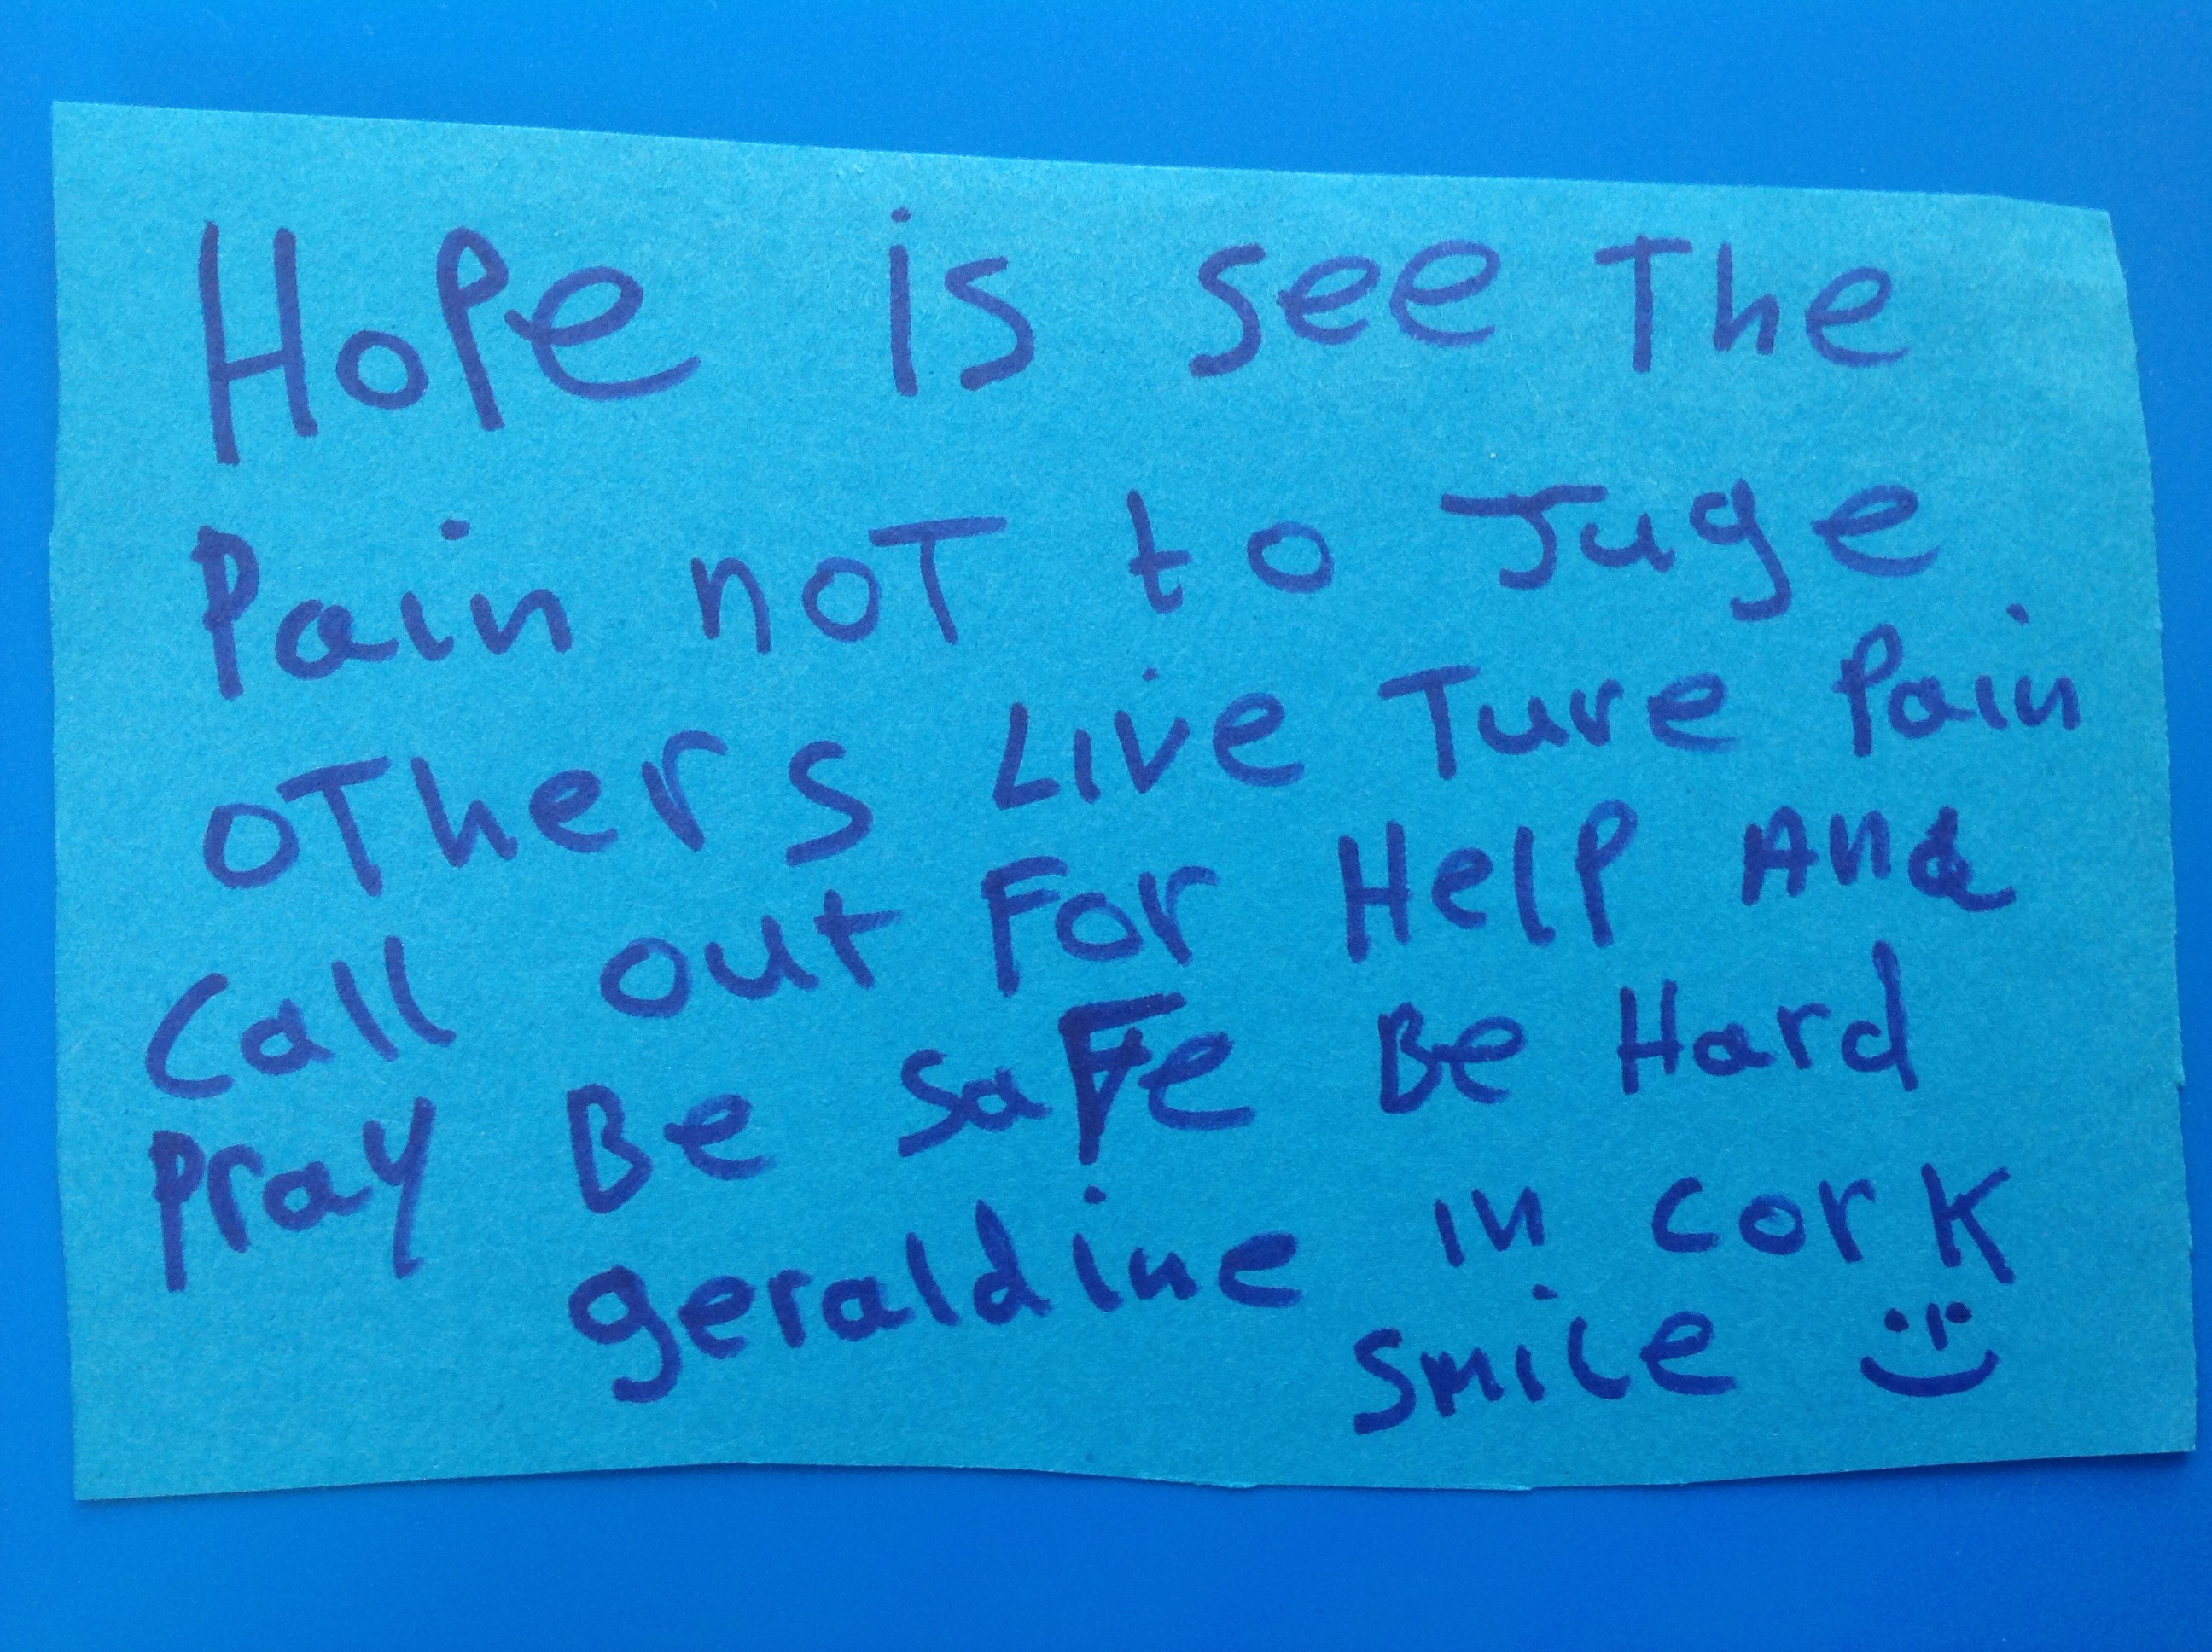 Hope is see The
Pain noT to Juge
oThers Live Ture Pain
Call out For Help And
Pray Be SaFe Be Hard
geraldine in cork
Smile